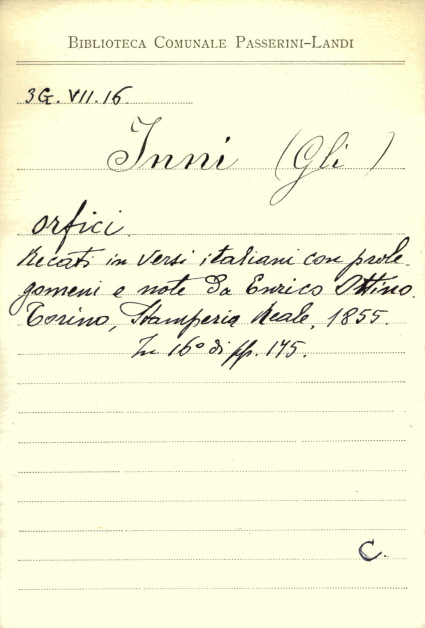 Biblioteca Comunale Passerini-Landi
3G. VII. 16
Inni (Gli)
orfici.
Recati in versi italiani con prole-
gomeni e note da Enrico Ottino.
Torino, Stamperia Reale, 1855.
In 16° di pp. 175.
C.